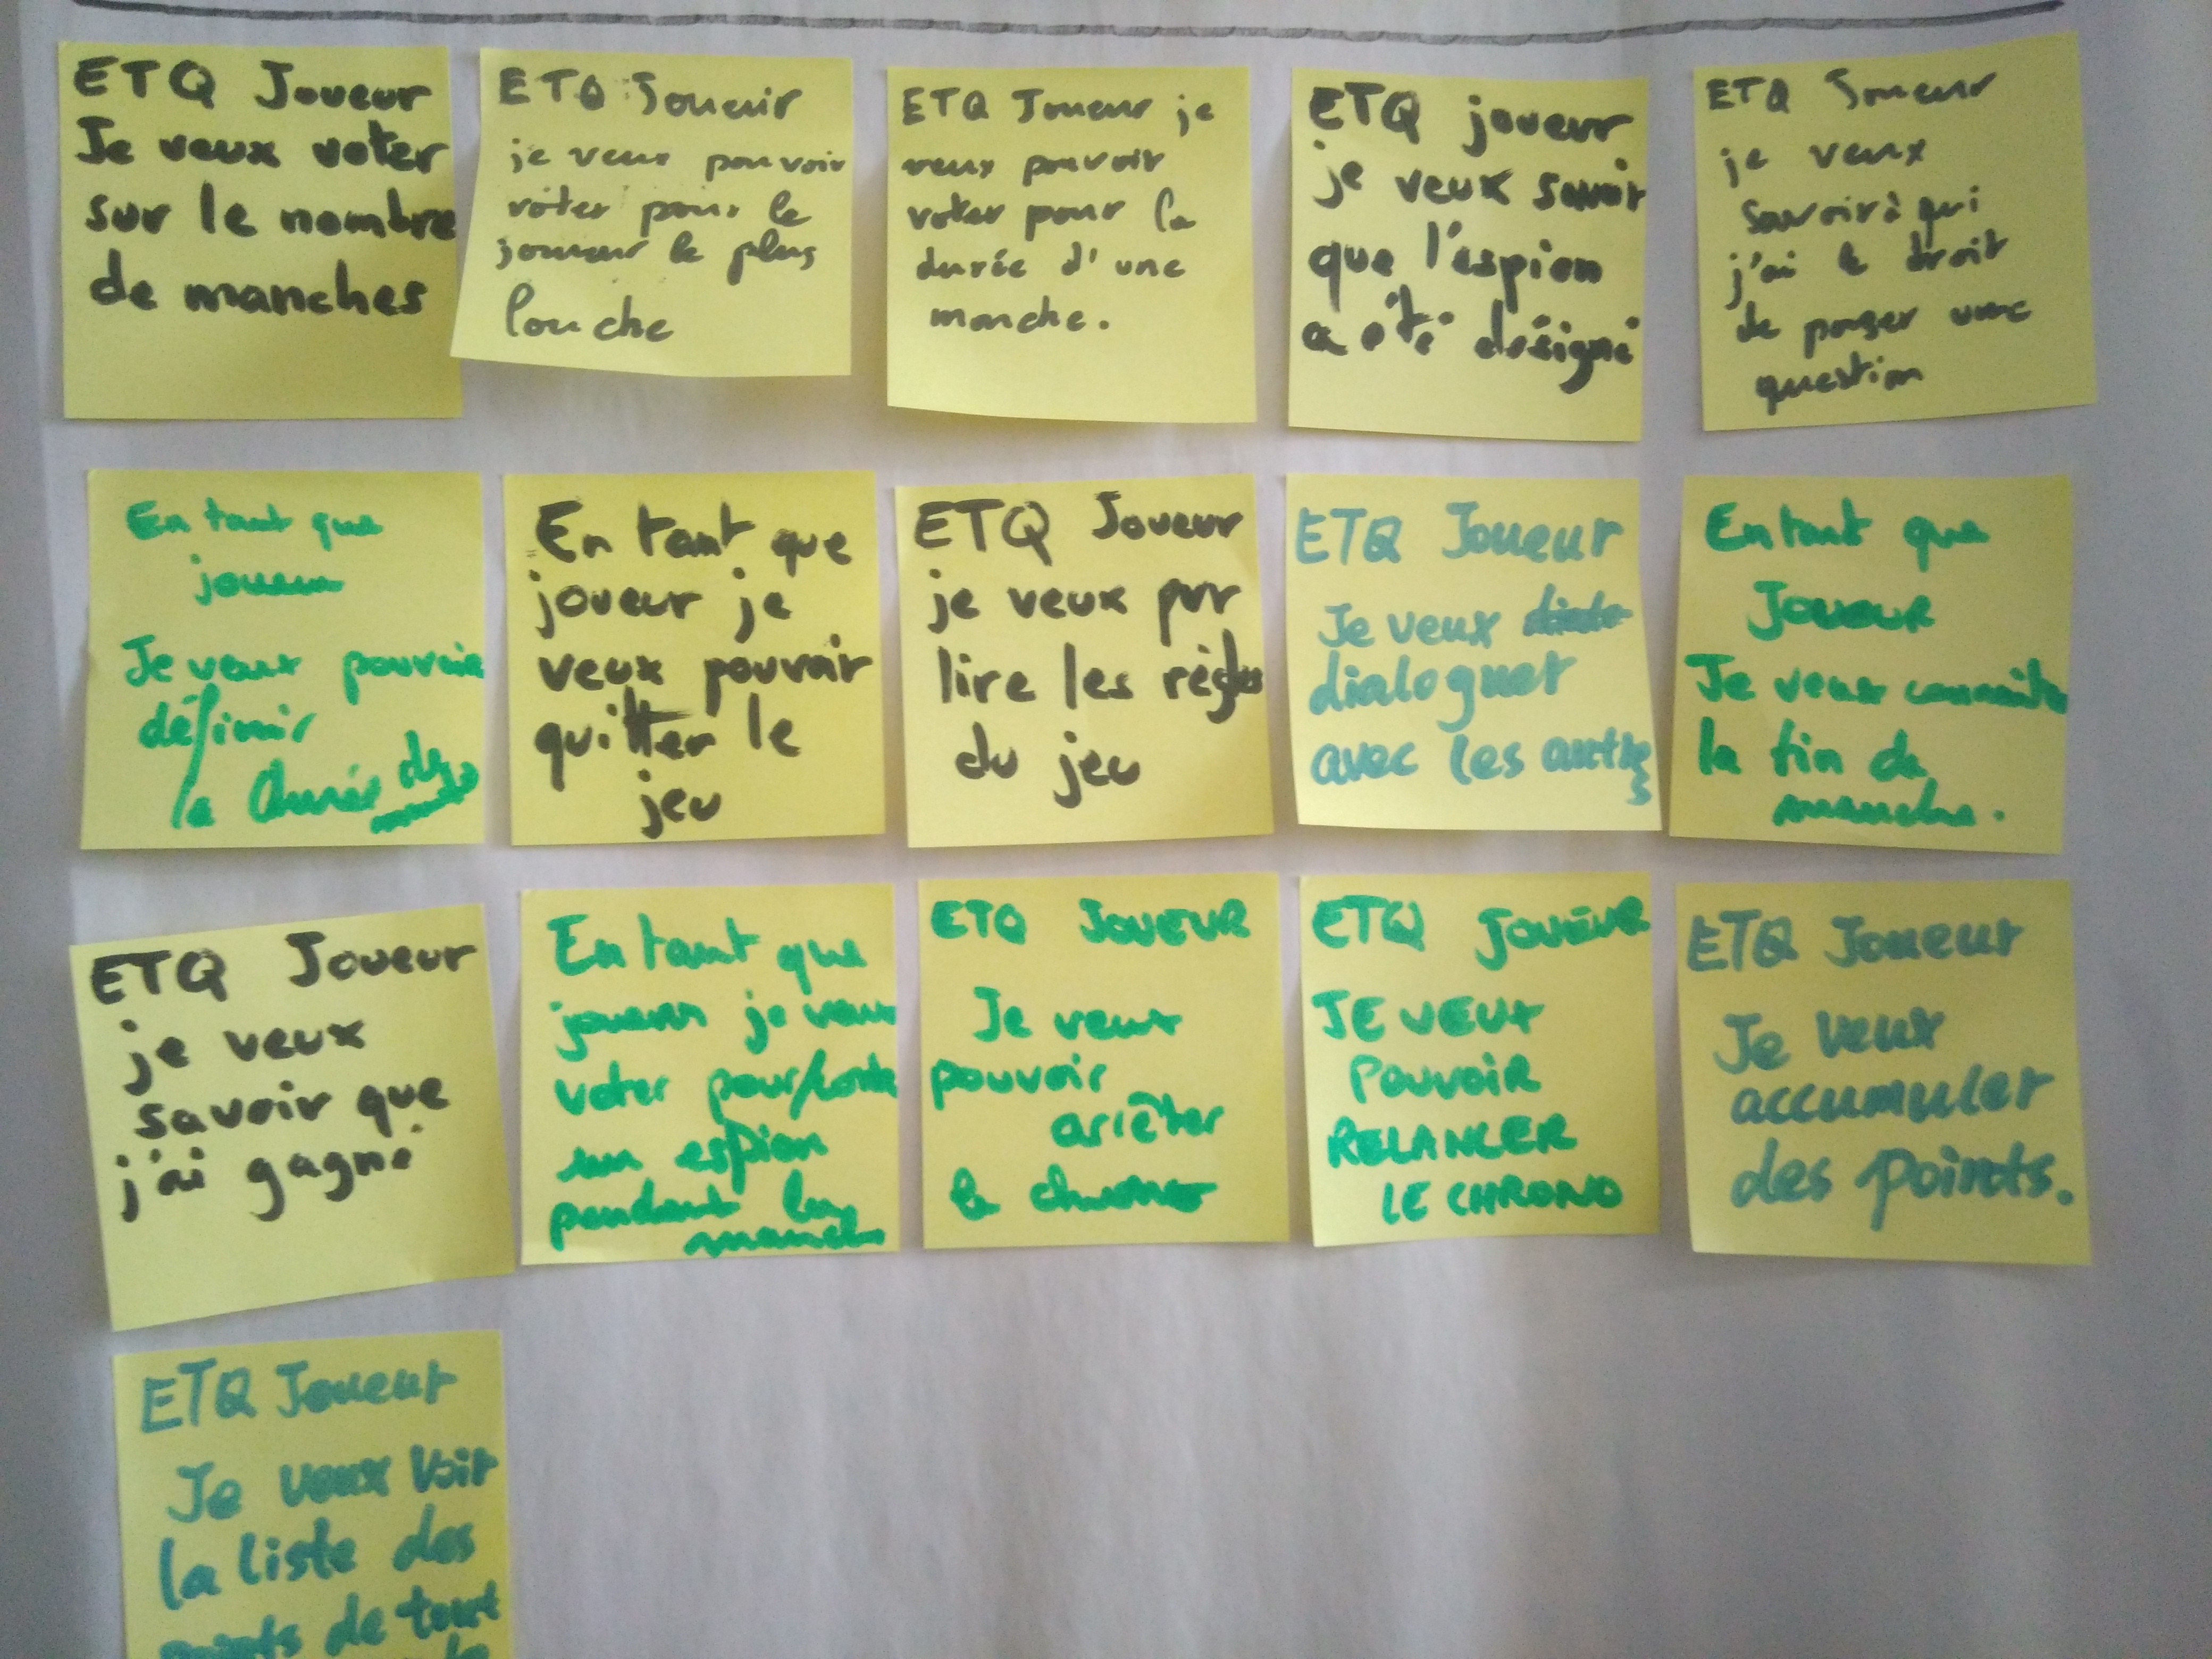 ETQ Joueur
Je veux voter
sur le nombre
de manches
ETQ Joueur
je veux pouvoir
voter pour le
joueur le plus
louche
ETQ Joueur je
veux pouvoir
voter pour la
durée d'une
manche.
ETQ joueur
je veux savoir
que l'espion
a été désigné
ETQ Joueur
je veux
savoir à qui
j'ai le droit
de poser une
question
En tant que
joueur
Je veux pouvoir
définir
la durée des
En tant que
joueur je
veux pouvoir
quitter le
jeu
ETQ Joueur
je veux pvr
lire les règles
du jeu
ETQ Joueur
Je veux
dialoguer
avec les autres
En tant que
Joueur
Je veux connaître
la fin de
manche.
ETQ Joueur
je veux
savoir que
j'ai gagné
En tant que
joueur je veux
voter pour/contre
un espion
pendant la
manche
ETQ JOUEUR
Je veux
pouvoir
arrêter
le chrono
ETQ JOUEUR
JE VEUX
POUVOIR
RELANCER
LE CHRONO
ETQ Joueur
Je veux
accumuler
des points.
ETQ Joueur
Je veux voir
la liste des
points de tout